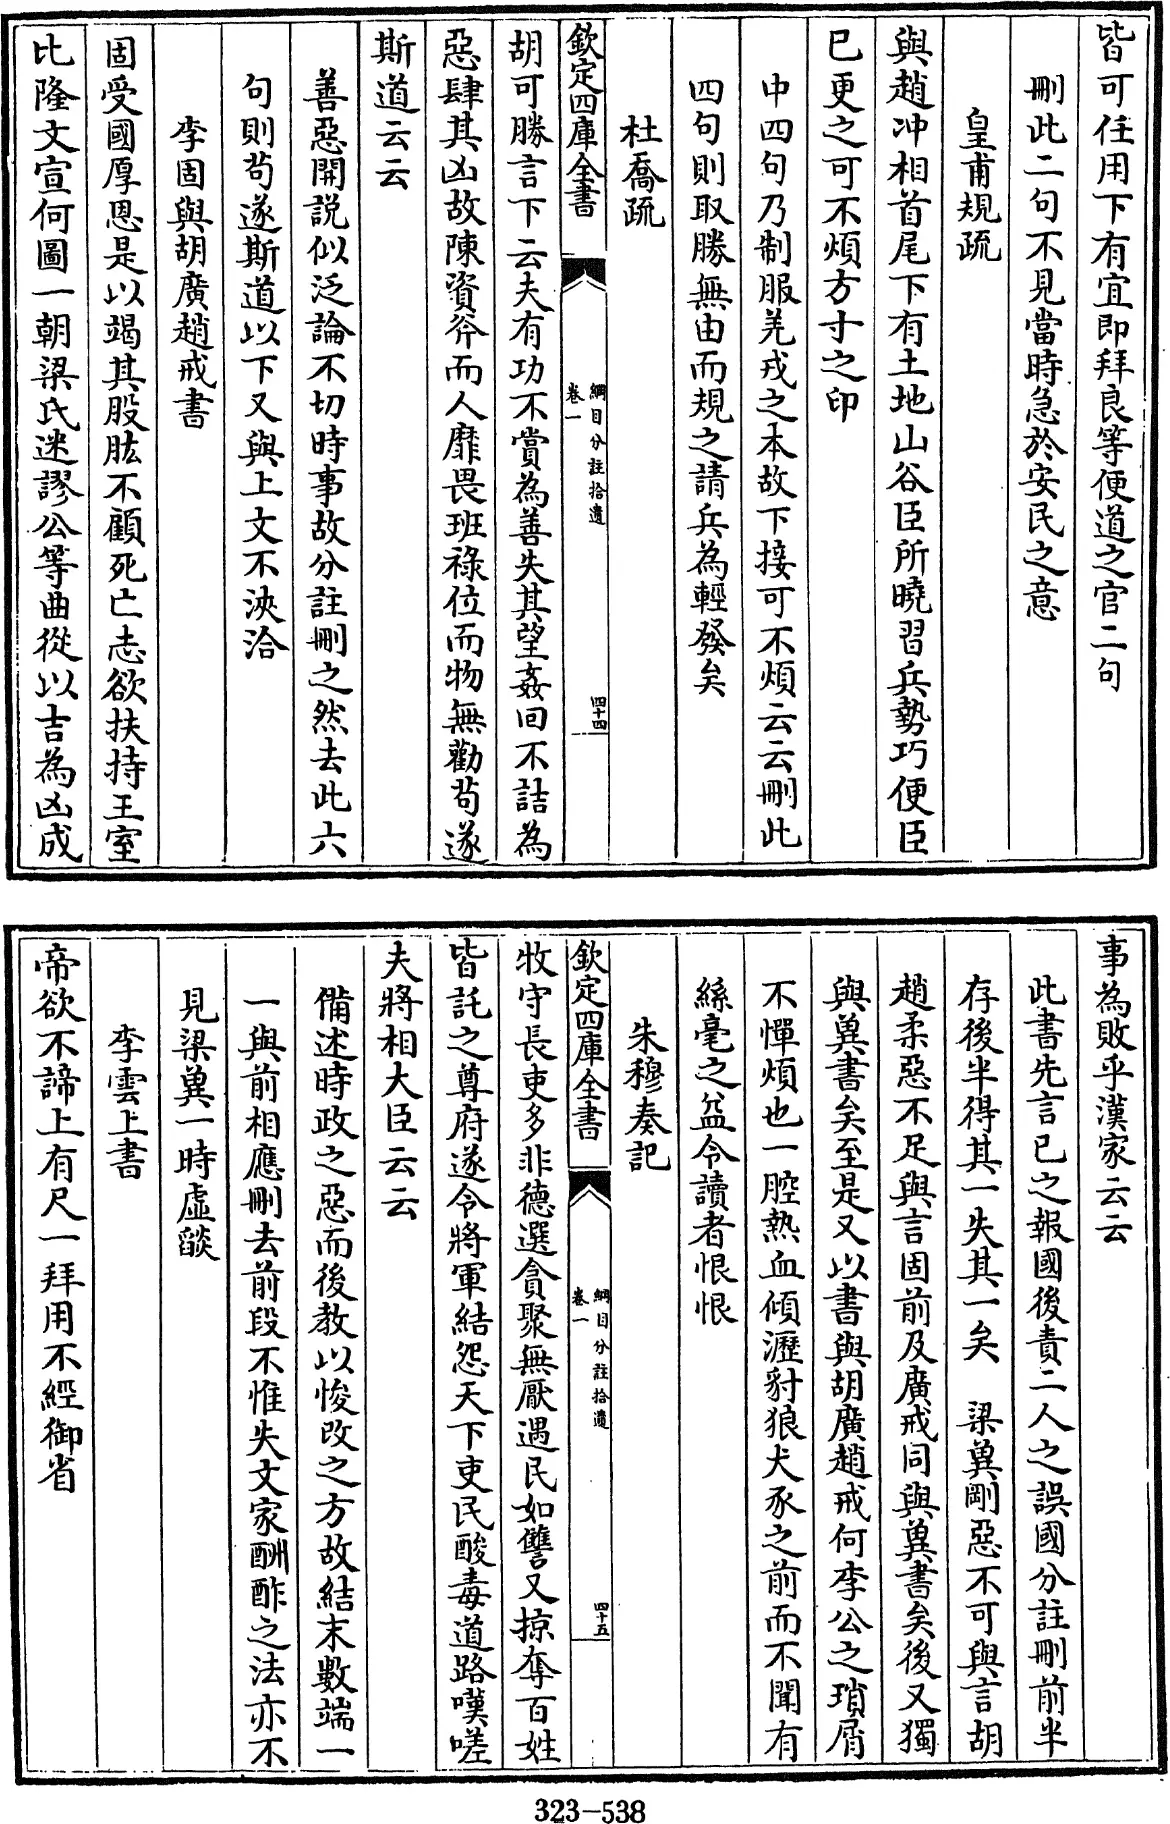 皆可任用下有宜即拜良等便道之官二句
刪此二句不見當時急於安民之意
皇甫規疏
與趙冲相首尾下有土地山谷臣所曉習兵勢巧便臣
已更之可不煩方寸之印
中四句乃制服羌戎之本故下接可不煩云云刪此
四句則取勝無由而規之請兵為輕發矣
杜喬疏
欽定四庫全書
綱目分註拾遺
卷一
四十四
胡可勝言下云夫有功不賞為善失其望姦回不詰為
惡肆其凶故陳資斧而人靡畏班祿位而物無勸苟遂
斯道云云
善惡開説似泛論不切時事故分註刪之然去此六
句則苟遂斯道以下又與上文不浹洽
李固與胡廣趙戒書
固受國厚恩是以竭其股肱不顧死亡志欲扶持王室
比隆文宣何圖一朝梁氏迷謬公等曲從以吉為凶成
事為敗乎漢家云云
此書先言已之報國後責二人之誤國分註刪前半
存後半得其一失其一矣　梁冀剛惡不可與言胡
趙柔惡不足與言固前及廣戒同與冀書矣後又獨
與冀書矣至是又以書與胡廣趙戒何李公之瑣屑
不憚煩也一腔熱血傾瀝豺狼犬豕之前而不聞有
絲毫之益令讀者恨恨
朱穆奏記
欽定四庫全書
綱目分註拾遺
卷一
四十五
牧守長吏多非德選貪聚無厭遇民如讐又掠奪百姓
皆託之尊府遂令將軍結怨天下吏民酸毒道路嘆嗟
夫將相大臣云云
備述時政之惡而後教以悛改之方故結末數端一
一與前相應刪去前段不惟失文家酬酢之法亦不
見梁冀一時虛燄
李雲上書
帝欲不諦上有尺一拜用不經御省
323-538